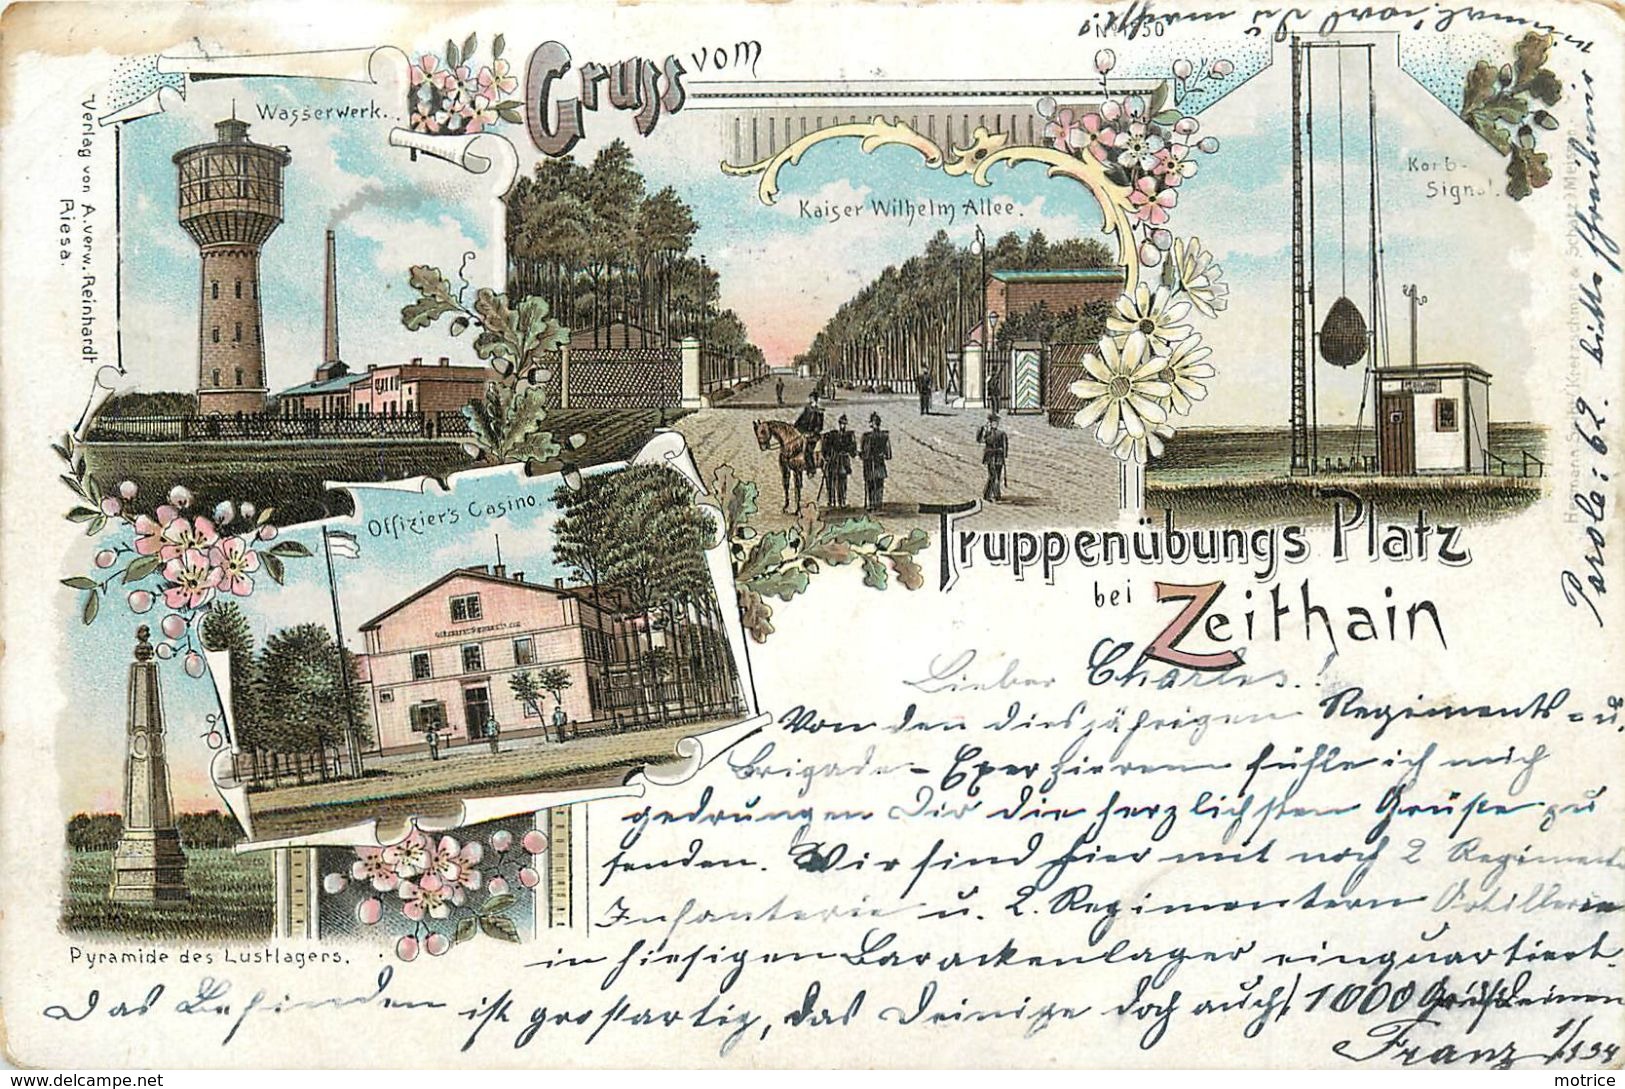 Gruss vom
No 1950
Wasserwerk.
Kaiser Wilhelm Allee.
Korb-
Signal.
Verlag von A. verw. Reinhardt
Riesa.
Offizier's Casino.
Truppenübungs Platz
bei Zeithain
Pyramide des Lustlagers.
Lieber Charles!
Von den diesjährigen Regiments- u.
Brigade-Exerzieren fühle ich mich
gedrungen Dir die herzlichsten Grüße zu
senden. Wir sind hier mit noch 2 Regiment
Infanterie u. 2. Regimentern Artillerie
in hiesigen Barackenlager einquartiert.
Das Befinden ist großartig, das Deinige doch auch! 1000 Grüße
Franz
Parole: 62. bitte
motrice